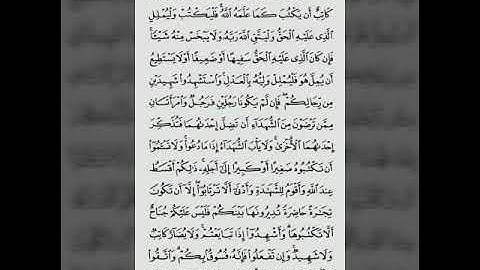 كَاتِبٌ أَن يَكْتُبَ كَمَا عَلَّمَهُ ٱللَّهُ فَلْيَكْتُبْ وَلْيُمْلِلِ
ٱلَّذِى عَلَيْهِ ٱلْحَقُّ وَلْيَتَّقِ ٱللَّهَ رَبَّهُۥ وَلَا يَبْخَسْ مِنْهُ شَيْـًٔا
فَإِن كَانَ ٱلَّذِى عَلَيْهِ ٱلْحَقُّ سَفِيهًا أَوْ ضَعِيفًا أَوْ لَا يَسْتَطِيعُ
أَن يُمِلَّ هُوَ فَلْيُمْلِلْ وَلِيُّهُۥ بِٱلْعَدْلِ وَٱسْتَشْهِدُوا۟ شَهِيدَيْنِ
مِن رِّجَالِكُمْ فَإِن لَّمْ يَكُونَا رَجُلَيْنِ فَرَجُلٌ وَٱمْرَأَتَانِ
مِمَّن تَرْضَوْنَ مِنَ ٱلشُّهَدَآءِ أَن تَضِلَّ إِحْدَىٰهُمَا فَتُذَكِّرَ
إِحْدَىٰهُمَا ٱلْأُخْرَىٰ وَلَا يَأْبَ ٱلشُّهَدَآءُ إِذَا مَا دُعُوا۟ وَلَا تَسْـَٔمُوٓا۟
أَن تَكْتُبُوهُ صَغِيرًا أَوْ كَبِيرًا إِلَىٰٓ أَجَلِهِۦ ذَٰلِكُمْ أَقْسَطُ
عِندَ ٱللَّهِ وَأَقْوَمُ لِلشَّهَٰدَةِ وَأَدْنَىٰٓ أَلَّا تَرْتَابُوٓا۟ إِلَّآ أَن تَكُونَ
تِجَٰرَةً حَاضِرَةً تُدِيرُونَهَا بَيْنَكُمْ فَلَيْسَ عَلَيْكُمْ جُنَاحٌ
أَلَّا تَكْتُبُوهَا وَأَشْهِدُوٓا۟ إِذَا تَبَايَعْتُمْ وَلَا يُضَآرَّ كَاتِبٌ
وَلَا شَهِيدٌ وَإِن تَفْعَلُوا۟ فَإِنَّهُۥ فُسُوقٌۢ بِكُمْ وَٱتَّقُوا۟